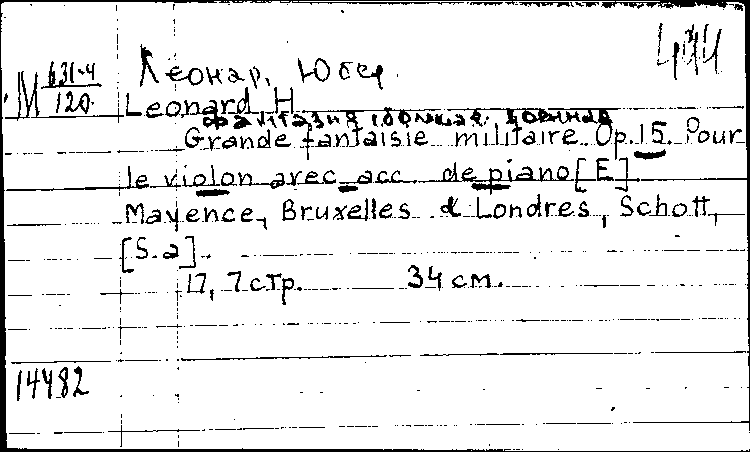 444
M 631-4
120
Леонар, Юбер.
Leonard H
Фантазия большая военная
Grande fantaisie militaire. Op. 15. Pour
le violon avec acc. de piano [E]
Mayence, Bruxelles & Londres, Schott,
[S.a].
17, 7 стр. 34 см.
14482